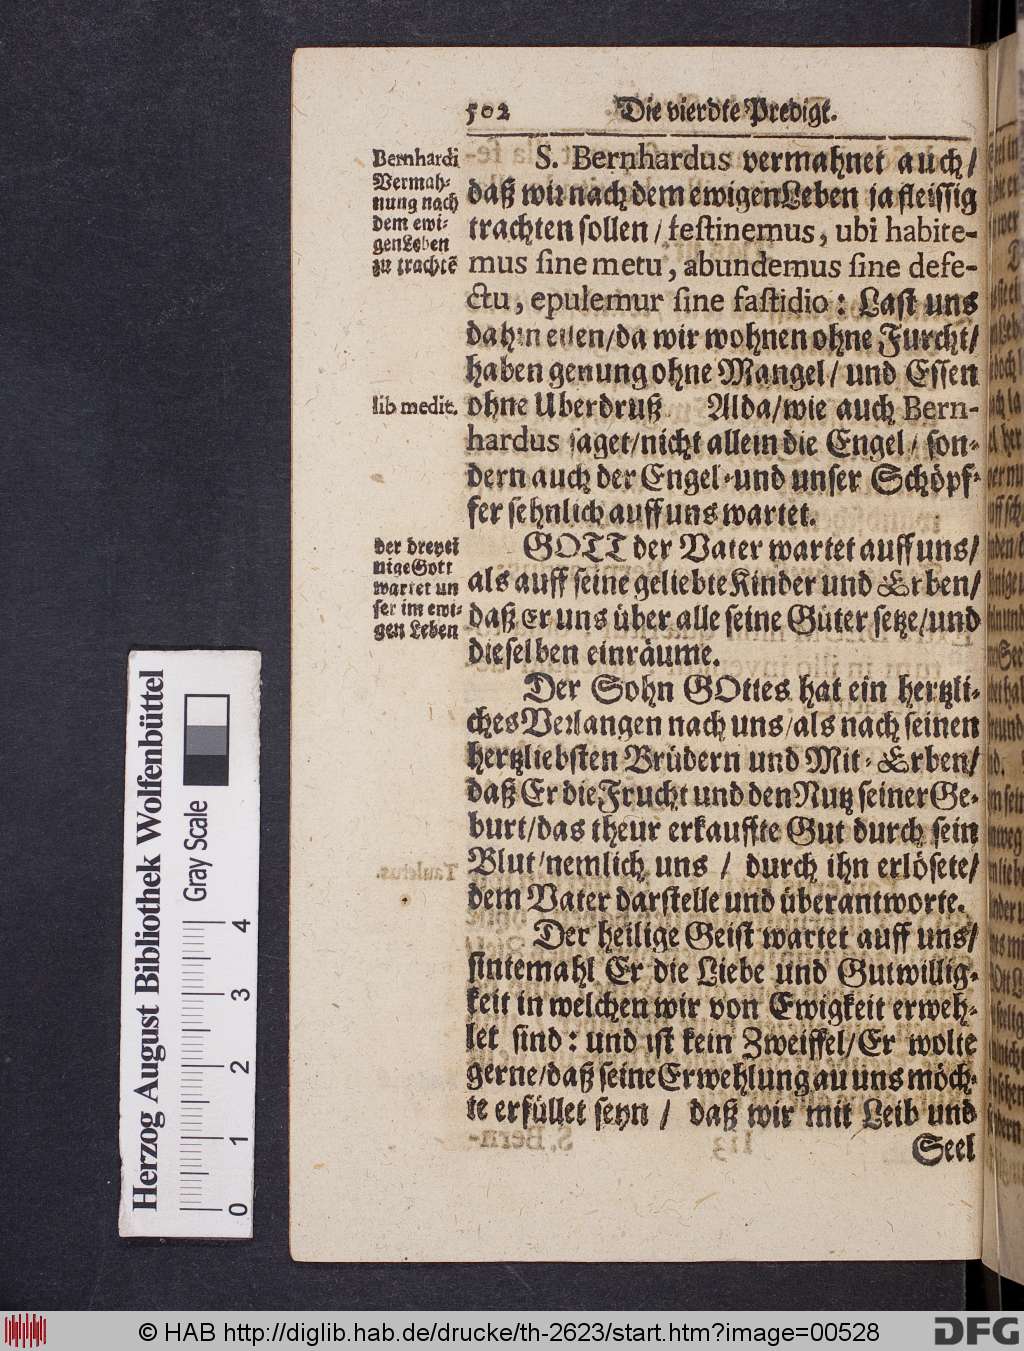 502 Die vierdte Predigt.
Bernhardi
Vermah-
nung nach
dem ewi-
gen Leben
zu trachtẽ
S. Bernhardus vermahnet auch/
daß wir nach dem ewigen Leben ja fleissig
trachten sollen/ festinemus, ubi habite-
mus sine metu, abundemus sine defe-
ctu, epulemur sine fastidio: Last uns
dahin eilen/da wir wohnen ohne Furcht/
haben genung ohne Mangel/ und Essen
lib medit.
ohne Uberdruß Alda/wie auch Bern-
hardus saget/nicht allein die Engel/ son-
dern auch der Engel-und unser Schöpf-
fer sehnlich auff uns wartet.
der dreyei
nige Gott
wartet un
ser im ewi-
gen Leben
GOTT der Vater wartet auff uns/
als auff seine geliebte Kinder und Erben/
daß Er uns über alle seine Güter setze/und
dieselben einräume.
Der Sohn GOttes hat ein hertzli-
ches Verlangen nach uns/als nach seinen
hertzliebsten Brüdern und Mit-Erben/
daß Er die Frucht und den Nutz seiner Ge-
burt/das theur erkauffte Gut durch sein
Blut/nemlich uns / durch ihn erlösete/
dem Vater darstelle und überantworte.
Der heilige Geist wartet auff uns/
sintemahl Er die Liebe und Gutwillig-
keit in welchen wir von Ewigkeit erweh-
let sind: und ist kein Zweiffel/Er wolte
gerne/daß seine Erwehlung an uns möch-
te erfüllet seyn / daß wir mit Leib und
Seel
Herzog August Bibliothek Wolfenbüttel
Gray Scale
0 1 2 3 4
© HAB http://diglib.hab.de/drucke/th-2623/start.htm?image=00528
DFG